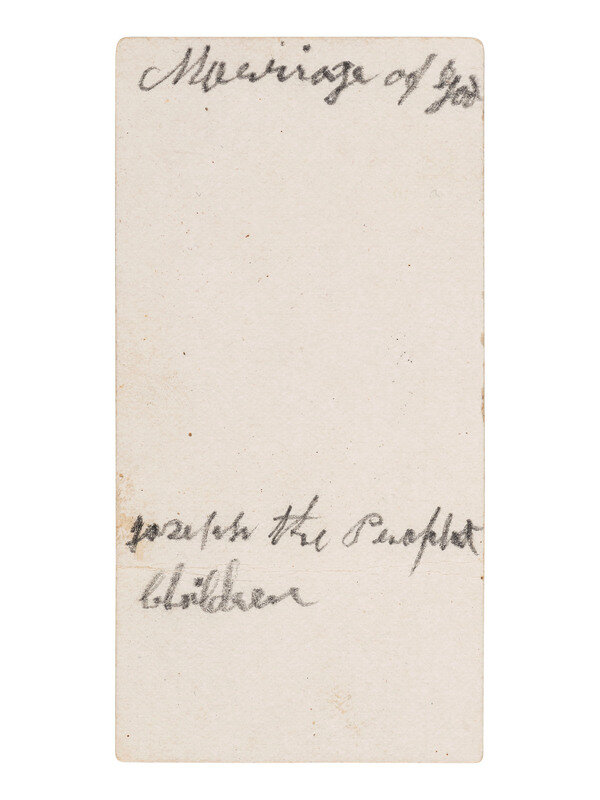 Marriage of God
Joseph the Prophet
Children